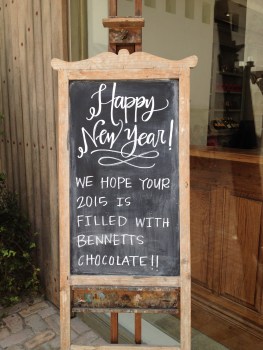 Happy
New Year!
WE HOPE YOUR
2015 IS
FILLED WITH
BENNETTS
CHOCOLATE!!